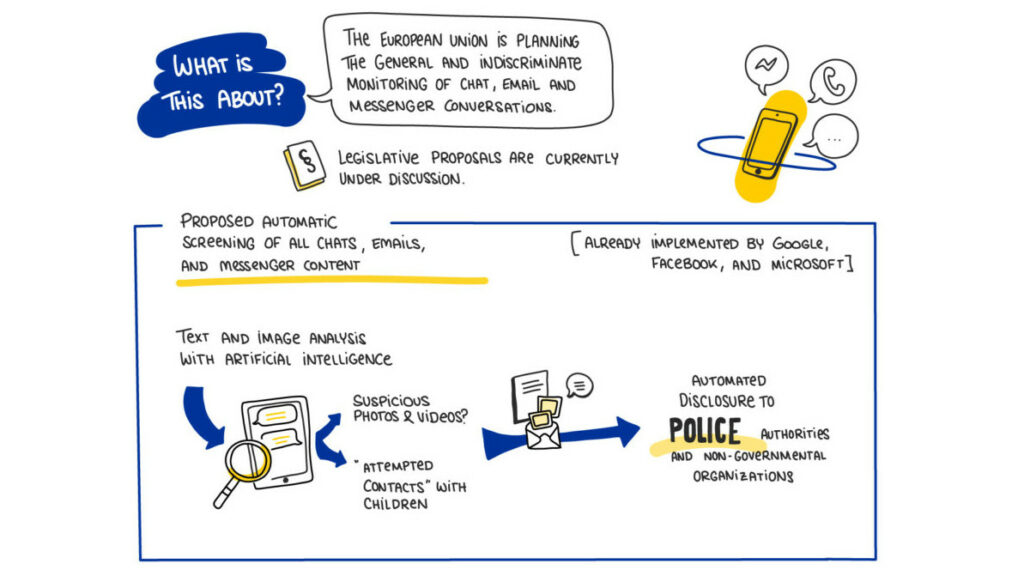 What is
this about?
The European Union is planning
the general and indiscriminate
monitoring of chat, email and
messenger conversations.
§
Legislative proposals are currently
under discussion.
Proposed automatic
screening of all chats, emails,
and messenger content
[Already implemented by Google,
Facebook, and Microsoft]
Text and image analysis
with artificial intelligence
Suspicious
photos & videos?
"Attempted
contacts" with
children
Automated
disclosure to
POLICE authorities
and non-governmental
organizations